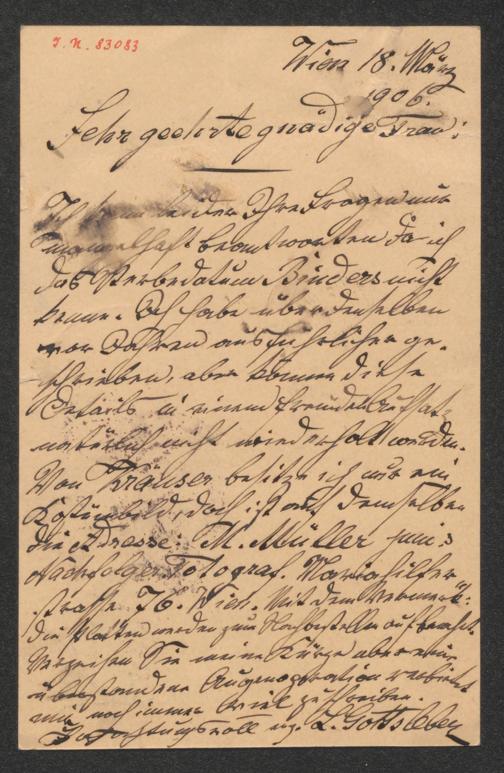 I. N. 83083
Wien 18. März
1906.
Sehr geehrte gnädige Frau!
Ich kann leider Ihre Fragen nur
mangelhaft beantworten da ich
das Sterbedatum Binders nicht
kenne. Ich habe über denselben
vor Jahren ausführlicher ge-
schrieben, aber können diese
Details in einem fremden Aufsatz
natürlich nicht wiederholt werden.
Von Träuser besitze ich nur ein
Kostümbild, doch ist auf demselben
die Adresse: M. Müller junis
Nachfolger Fotograf. Mariahilfer
strasse 76. Wien. Mit dem Vermerk:
die Platten werden zum Nachbestellen aufbewahrt.
Verzeihen Sie meine Kürze aber eine
überstandene Augenoperation verbietet
mir noch immer viel zu schreiben.
Hochachtungsvoll erg. L. Gottsleben